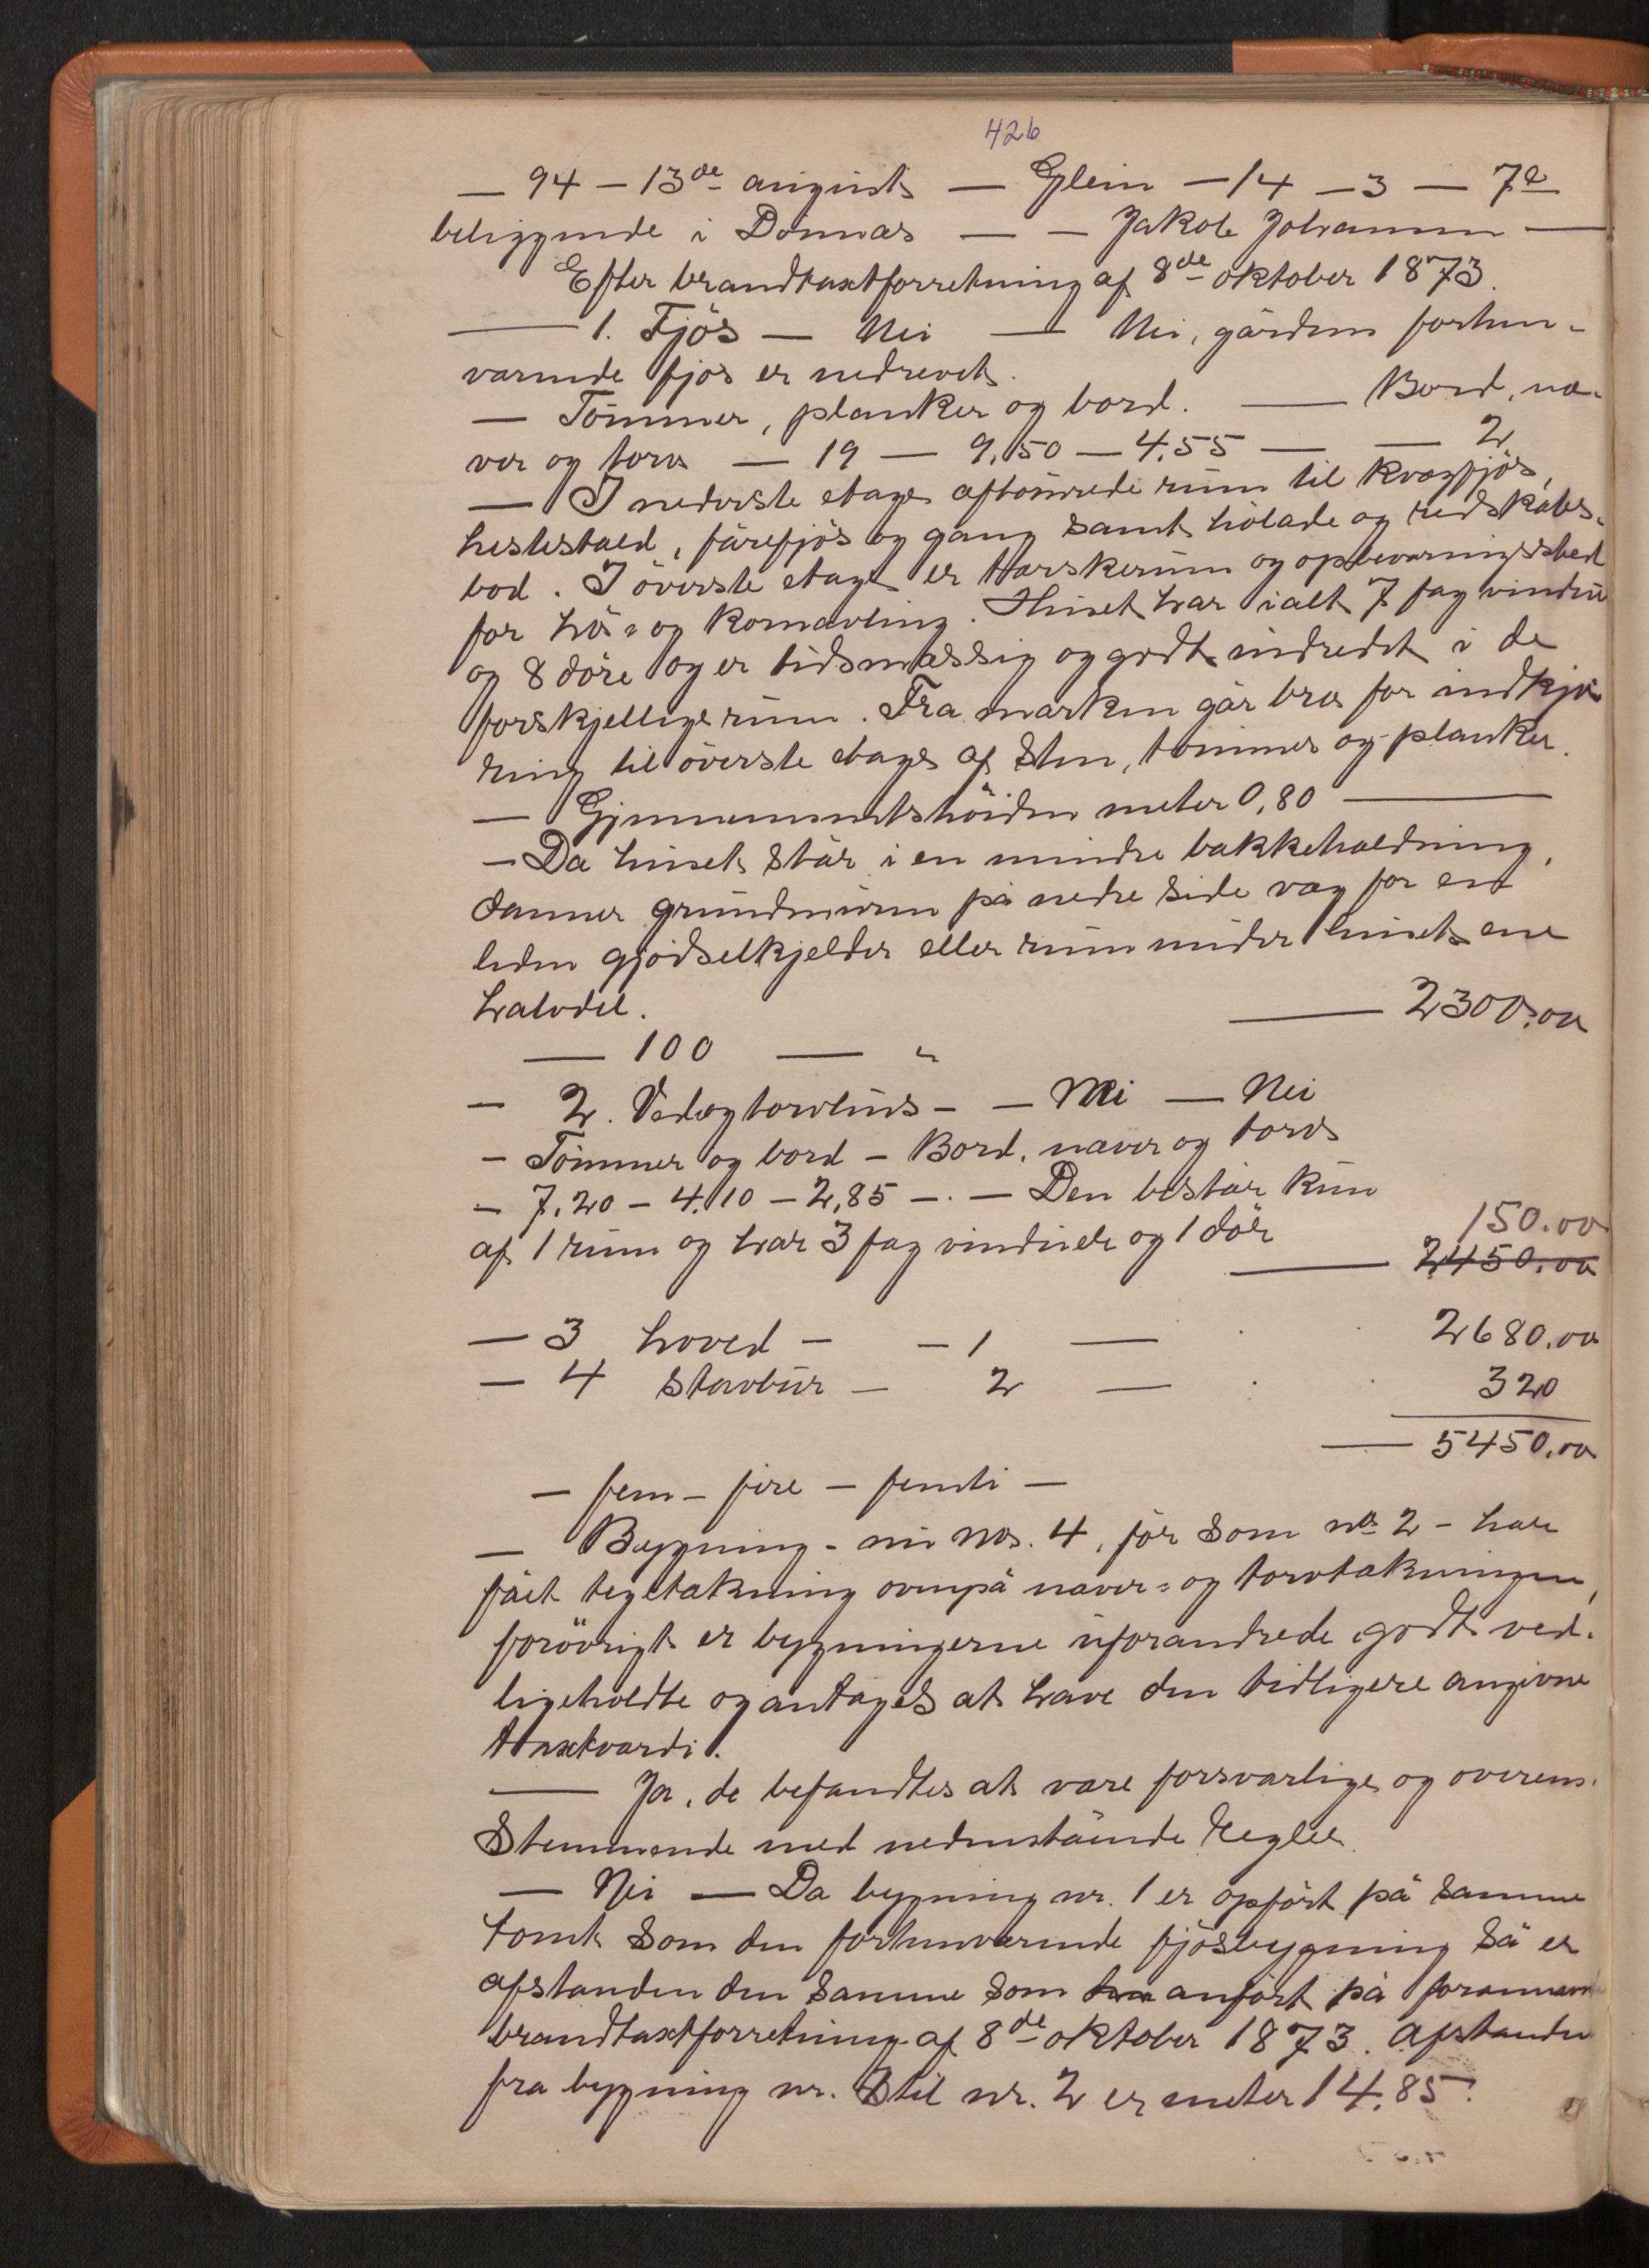 426
— 94 — 13de august — Glein — 14 — 3 — 7de
beliggende i Dönnæs — — Jakob Johansen —
Efter brandtaxtforretning af 8de oktober 1873.
— 1. Fjös — Nei — Nei, gårdens forhen-
værende fjös er nedrevet.
— Tömmer, planker og bord. — Bord, næ-
ver og torv — 19 — 9,50 — 4,55 — — 2
— I nederste etage aftömrede rum til kvægfjös,
hestestald, fårefjös og gang samt hölade og redskabs-
bod. I överste etage er tærskerum og opbevaringssted
for hö- og kornavling. Huset har ialt 7 fag vindu
og 8 döre og er tidsmæssig og godt indredet i de
forskjellige rum. Fra marken går bro for indkjö-
ring til överste etage af sten, tömmer og planker.
— Gjennemsnitshöiden meter 0,80 —
— Da huset står i en mindre bakkehældning,
danner grundmuren på nedre side væg for en
liden gjödselkjelder eller rum under husets ene
halvdel. — 2300.00
— 100 — "
— 2. Vedogtorvhus — — Nei — Nei
— Tömmer og bord — Bord, næver og torv
— 7,20 — 4,10 — 2,85 — . — Den består kun
af 1 rum og har 3 fag vinduer og 1 dör 150.00
— 2450.00
— 3 hoved — — 1 — 2680.00
— 4 stavbur — 2 — 320
— 5450.00
— fem — fire — femti —
— Bygning - nu No. 4, för som no 2 - har
fået tegltækning ovenpå næver- og torvtækningen,
forövrigt er bygningerne uforandrede, godt ved-
ligeholdte og antages at have den tidligere angivne
taxtværdi.
— Ja, de befandtes at være forsvarlige og overens-
stemmende med nedenstående Regler.
— Nei — Da bygning nr. 1 er opfört på samme
tomt som den forhenværende fjösbygning så er
afstanden den samme som anfört på forannævn
brandtaxtforretning af 8de oktober 1873. Afstanden
fra bygning nr. 3 til nr. 2 er meter 14,85.